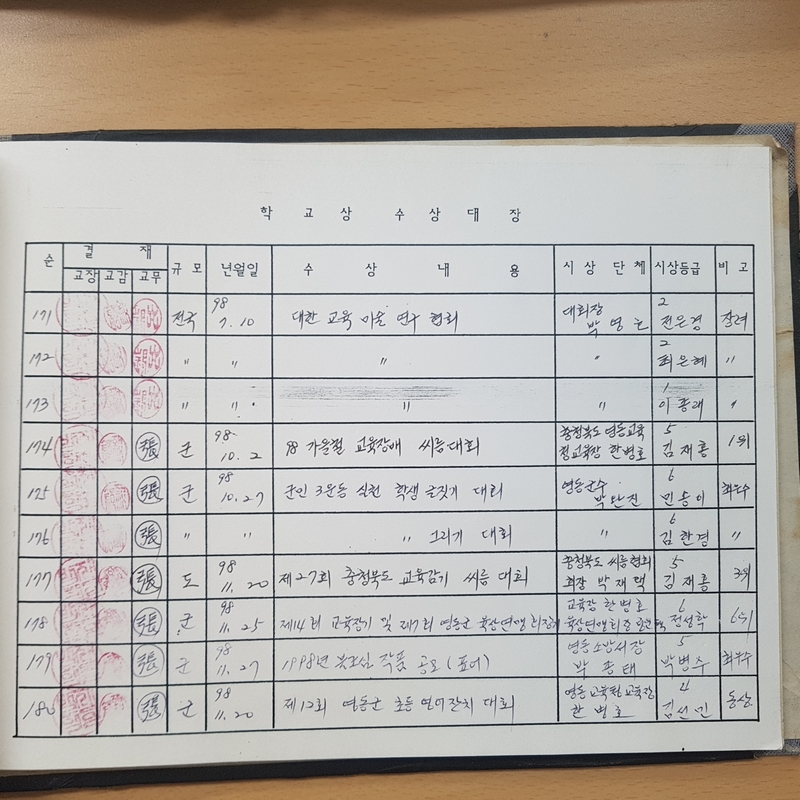 학 교 상 수 상 대 장
순 결 재 규 모 년월일 수 상 내 용 시 상 단 체 시상등급 비 고
교장 교감 교무
171 전국 98 7. 10 대한 교육 미술 연구 협회 대회장 박 영 2 전은경 장려
172 〃 〃 〃 〃 2 최은혜 〃
173 〃 〃 〃 〃 1 이종래 〃
174 張 군 98 10. 2 98 가을철 교육장배 씨름대회 충청북도 영동교육청교육장 한병호 5 김재홍 1위
175 張 군 98 10. 27 군민 3운동 실천 학생 글짓기 대회 영동군수 박완진 6 민송이 최우수
176 張 〃 〃 〃 그리기 대회 〃 6 김한경 〃
177 張 도 98 11. 20 제27회 충청북도 교육감기 씨름 대회 충청북도 씨름협회 회장 박재택 5 김재홍 3위
178 張 군 98 11. 25 제14회 교육장기 및 제7회 영동군 육상연맹회장기 교육장 한병호 육상연맹회장 6 전성학 6위
179 張 군 98 11. 27 1998년 불조심 작품 공모 (표어) 영동소방서장 박종태 5 박병수 최우수
180 張 군 98 11. 20 제12회 영동군 초등 영어잔치 대회 영동교육청교육장 한병호 4 김선민 동상